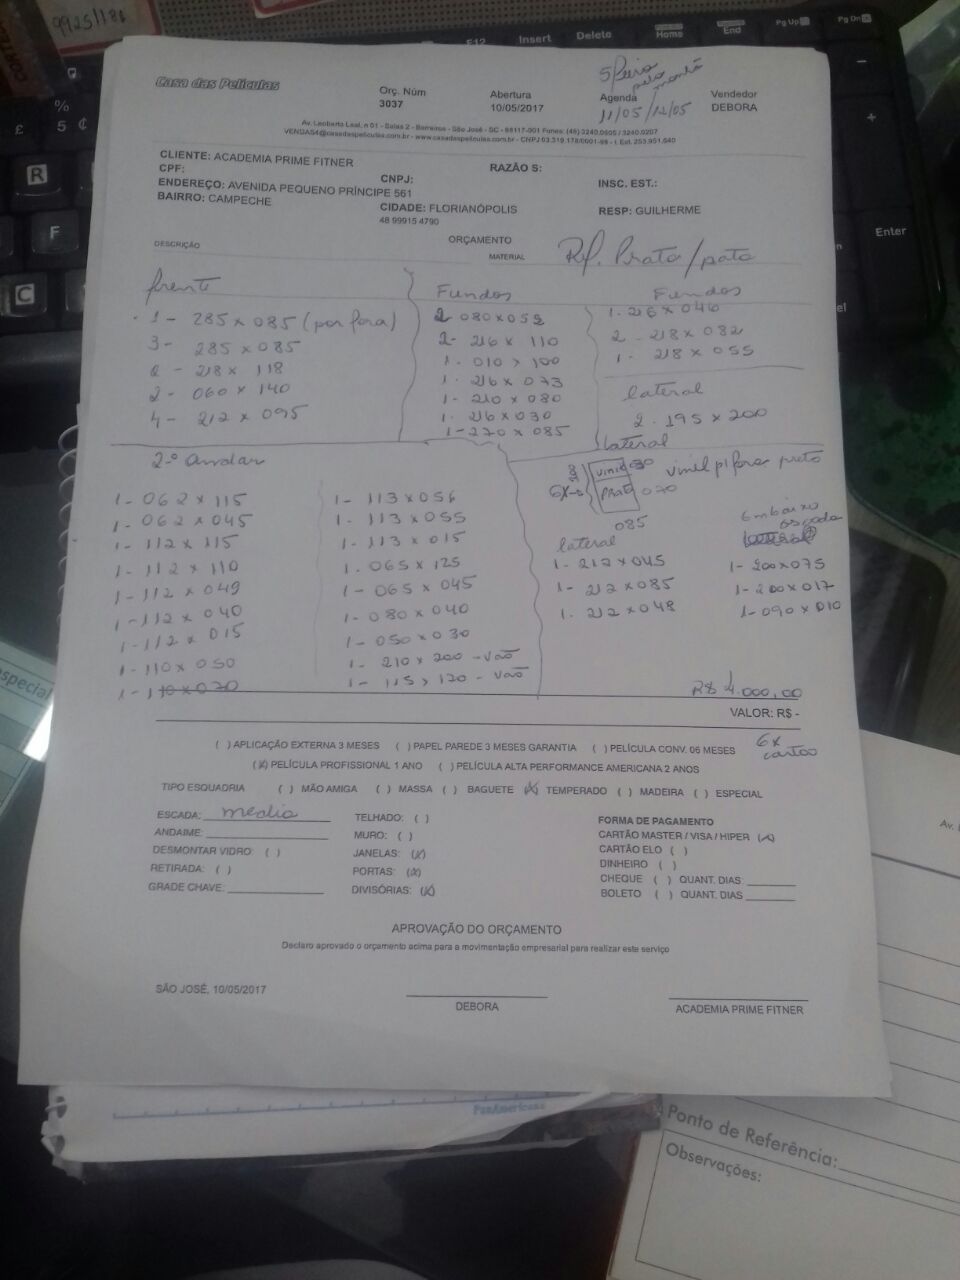 9925/18
F12 Insert Delete Home End Pg Up Pg Dn
Enter
%
£ 5 ¢
R
F
C
5 feira
pela manhã
Casa das Películas
Orç. Núm
3037
Abertura
10/05/2017
Agenda
11/05/12/05
Vendedor
DEBORA
Av. Leoberto Leal, n 01 - Salas 2 - Barreiros - São José - SC - 88117-001 Fones: (48) 3240.0605 / 3240.0207
VENDAS4@casadaspeliculas.com.br - www.casadaspeliculas.com.br - CNPJ 03.319.178/0001-98 - I. Est. 253.951.640
CLIENTE: ACADEMIA PRIME FITNER
RAZÃO S:
CPF:
CNPJ:
INSC. EST.:
ENDEREÇO: AVENIDA PEQUENO PRÍNCIPE 561
BAIRRO: CAMPECHE
CIDADE: FLORIANÓPOLIS
RESP: GUILHERME
48 99915 4790
DESCRIÇÃO
ORÇAMENTO
MATERIAL
Ref. Prata/prata
frente
1 - 285 x 085 (por fora)
3 - 285 x 085
2 - 218 x 118
2 - 060 x 140
4 - 212 x 095
Fundos
2 080 x 052
2 - 216 x 110
1 - 010 x 100
1 - 216 x 073
1 - 210 x 080
1 - 216 x 030
1 - 270 x 085
Fundos
1 - 216 x 046
2 - 218 x 082
1 - 218 x 055
lateral
2 - 195 x 200
2º andar
1 - 062 x 115
1 - 062 x 045
1 - 112 x 115
1 - 112 x 110
1 - 112 x 049
1 - 112 x 040
1 - 112 x 015
1 - 110 x 050
1 - 110 x 070
1 - 113 x 056
1 - 113 x 055
1 - 113 x 015
1 - 065 x 125
1 - 065 x 045
1 - 080 x 040
1 - 050 x 030
1 - 210 x 200 - vão
1 - 115 x 120 - vão
lateral
vinil 30 vinil p/ fora preto
6x prata 070
085
lateral
1 - 212 x 045
1 - 212 x 085
1 - 212 x 048
Embaixo
escada
1 - 200 x 075
1 - 200 x 017
1 - 090 x 010
R$ 4.000,00
VALOR: R$ -
6x
cartão
( ) APLICAÇÃO EXTERNA 3 MESES ( ) PAPEL PAREDE 3 MESES GARANTIA ( ) PELÍCULA CONV. 06 MESES
(X) PELÍCULA PROFISSIONAL 1 ANO ( ) PELÍCULA ALTA PERFORMANCE AMERICANA 2 ANOS
TIPO ESQUADRIA ( ) MÃO AMIGA ( ) MASSA ( ) BAGUETE (X) TEMPERADO ( ) MADEIRA ( ) ESPECIAL
ESCADA: media
ANDAIME:
DESMONTAR VIDRO: ( )
RETIRADA: ( )
GRADE CHAVE:
TELHADO: ( )
MURO: ( )
JANELAS: (X)
PORTAS: (X)
DIVISÓRIAS: (X)
FORMA DE PAGAMENTO
CARTÃO MASTER / VISA / HIPER (X)
CARTÃO ELO ( )
DINHEIRO ( )
CHEQUE ( ) QUANT. DIAS
BOLETO ( ) QUANT. DIAS
APROVAÇÃO DO ORÇAMENTO
Declaro aprovado o orçamento acima para a movimentação empresarial para realizar este serviço
SÃO JOSÉ, 10/05/2017
DEBORA
ACADEMIA PRIME FITNER
PanAmericana
especial
Av.
Ponto de Referência:
Observações: